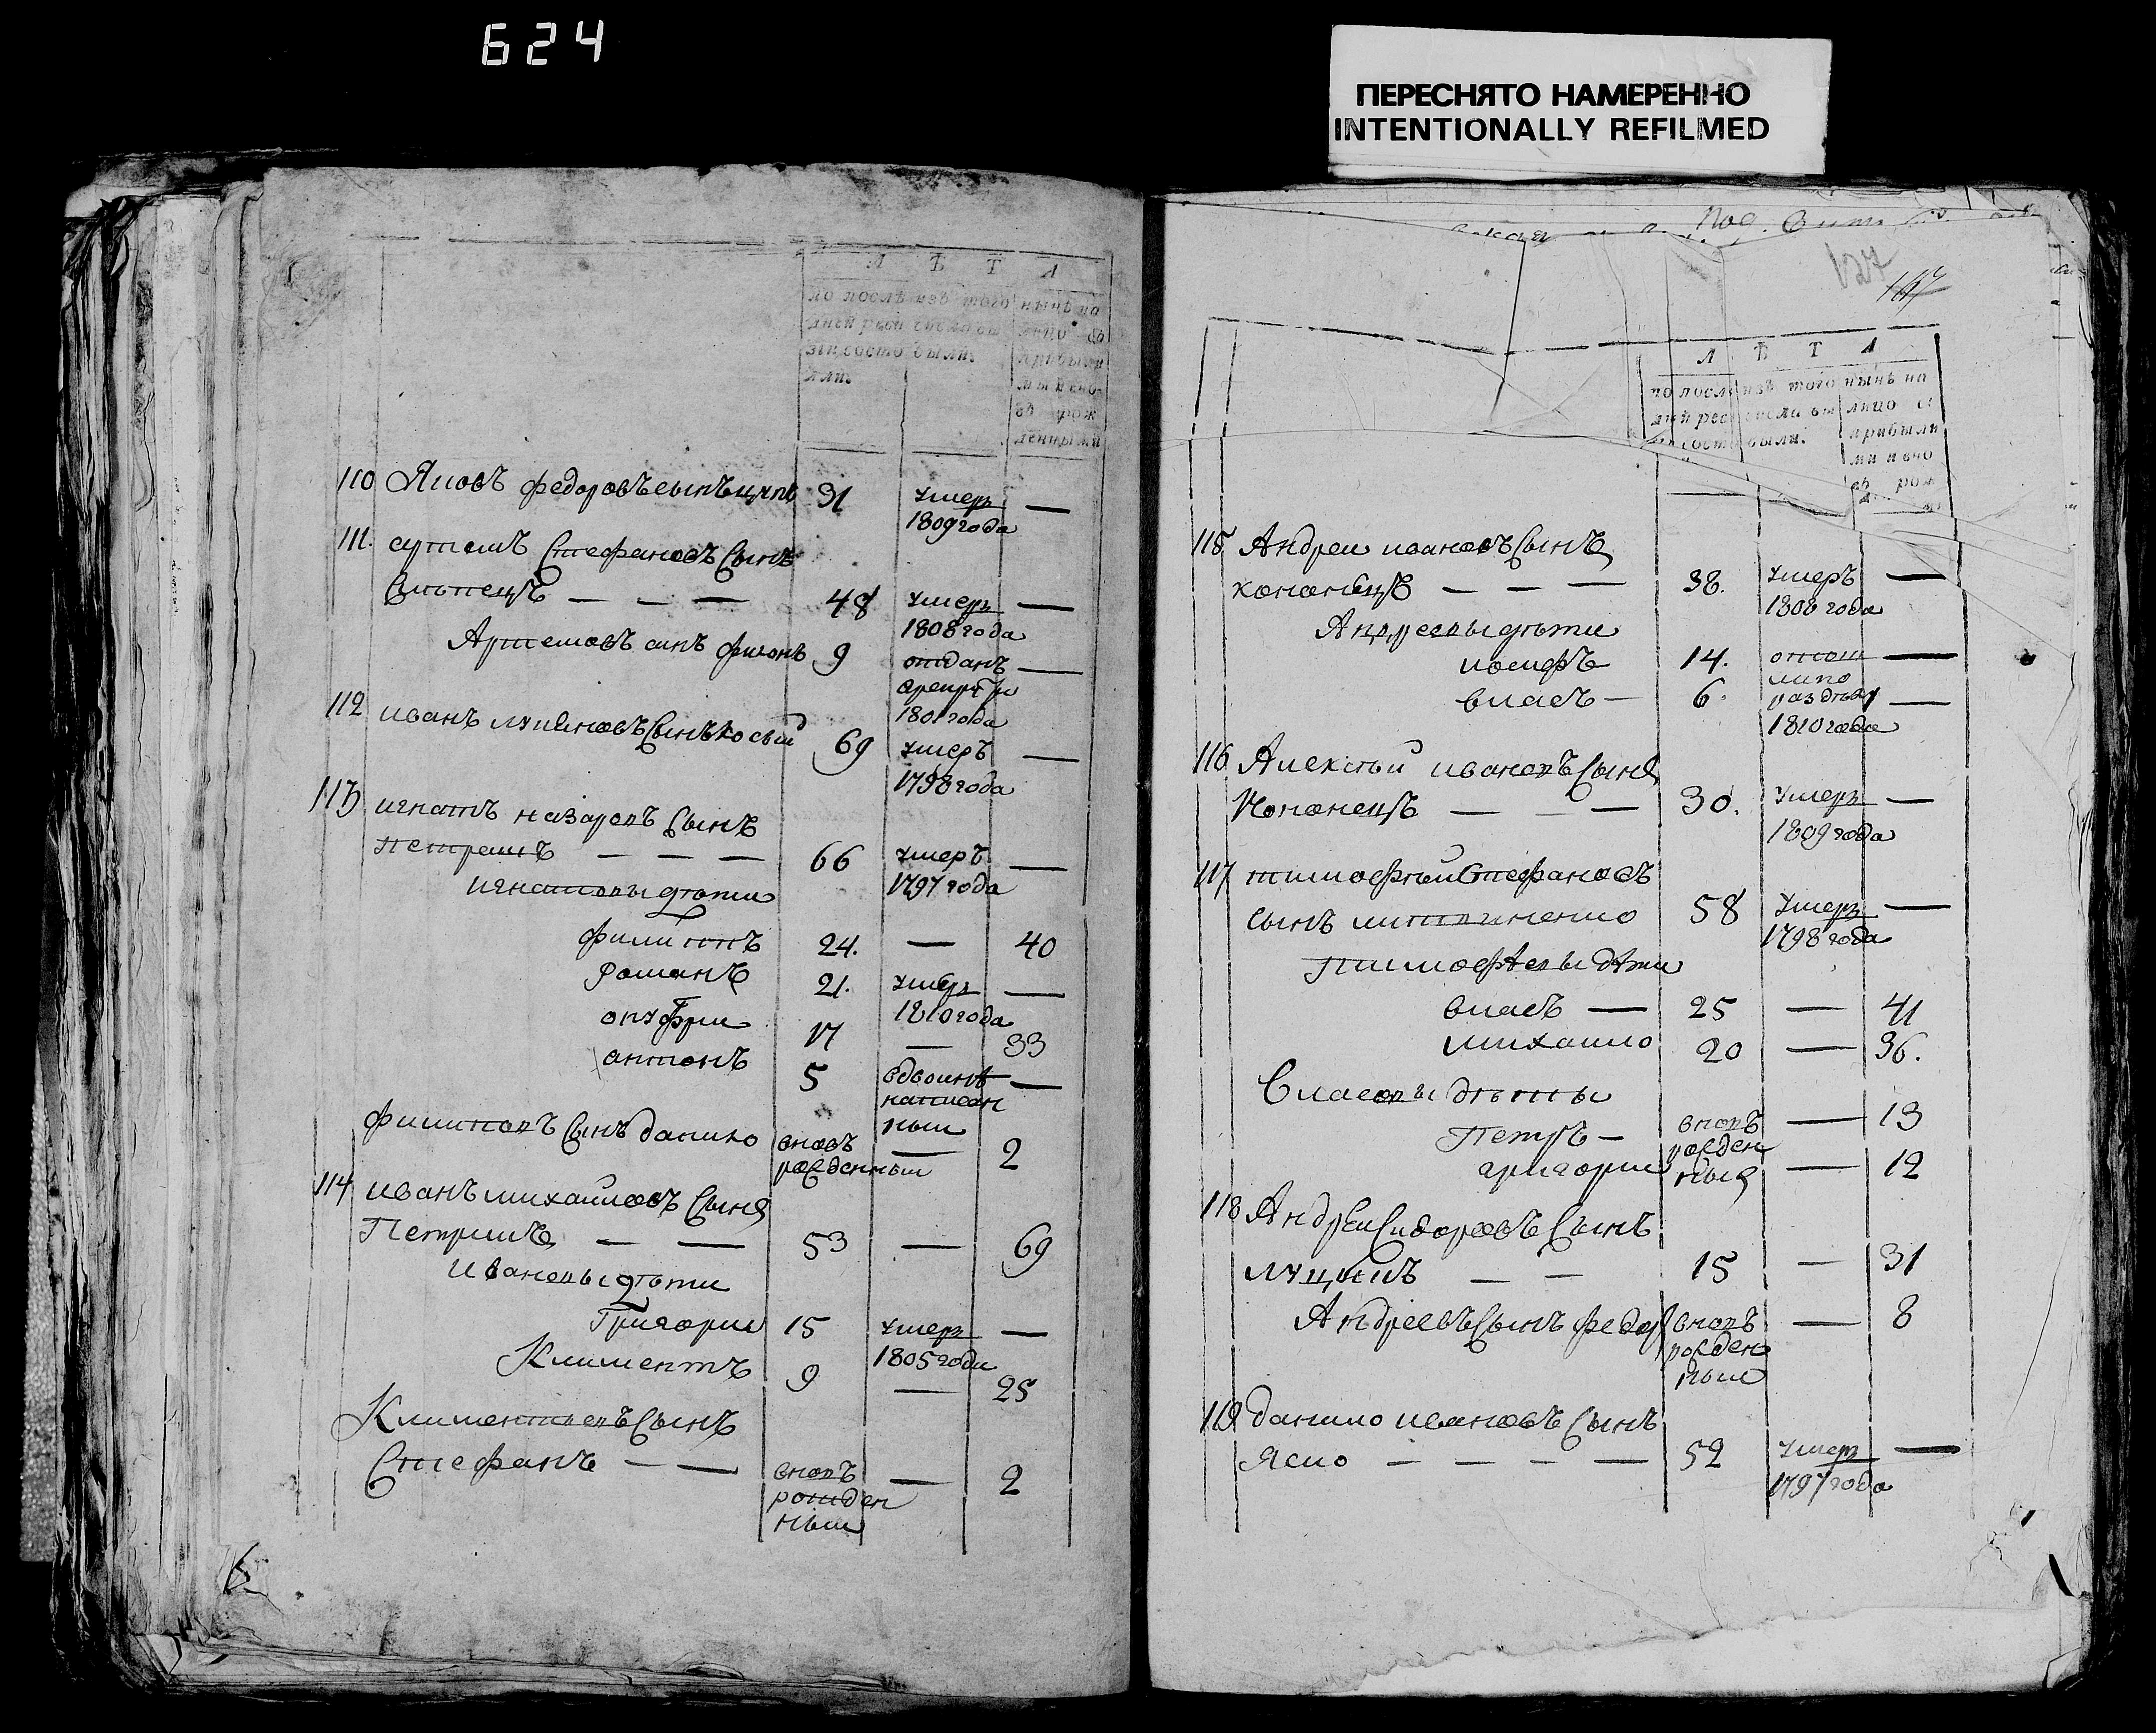 624
ПЕРЕСНЯТО НАМЕРЕННО
INTENTIONALLY REFILMED
Л Ѣ Т А
по послѣ изъ того нынѣ на
дней реви числа вы лицо съ
зіи состо были. прибыли
яли. ми и вно
въ рож
денными
110 Яковъ федоровъ сынъ 31 умеръ —
1809 года
111. артемъ Стефановъ Сынъ
— — — 48 умеръ —
1808 года
Артемовъ синъ 9 отданъ —
врекруты
1801 года
112 иванъ Сынъ косый 69 умеръ —
1798 года
113 игнатъ назаровъ Сынъ
петрикъ — — — 66 умеръ —
1797 года
игнатовы дѣти
филипъ 24. — 40
романъ 21. умеръ —
1810 года
онуфри 17 — 33
антонъ 5 вдвоинѣ —
написан
ныи
филиповъ Сынъ данило вновь — 2
рожденныи
114 иванъ михайловъ Сынъ
Петрикъ — — 53 — 69
Ивановы дѣти
Григории 15 умеръ —
1805 года
Климентъ 9 — 25
Климентьевъ Сынъ
Стефанъ — — вновъ — 2
рожден
ныи
127
Л Ѣ Т А
по послѣ изъ того нынѣ на
дней рев числа вы лицо съ
зіи сост были. прибыли
ми и вно
въ рож
115 Андреи ивановъ Сынъ
кононецъ — — — 38. умеръ —
1808 года
Андреевы дѣти
иосифъ 14. отош —
ли по
власъ — 6. раздѣлу —
1810 года
116 Алексѣй ивановъ Сынъ
Кононецъ — — — 30. умеръ —
1809 года
117 тимофѣй Стефановъ
сынъ литвиненко 58 умеръ —
1798 года
Тимофѣевы дѣти
власъ — 25 — 41
михаило 20 — 36.
Власовы дѣти
Петръ — вновъ — 13
рожден
григории ныя — 12
118 Андреи Сидоровъ Сынъ
луцикъ — — 15 — 31
Андреевъ Сынъ федоръ вновъ — 8
рожден
ныи
119 данило ивановъ Сынъ
Яско — — — — 52 умеръ —
1797 года